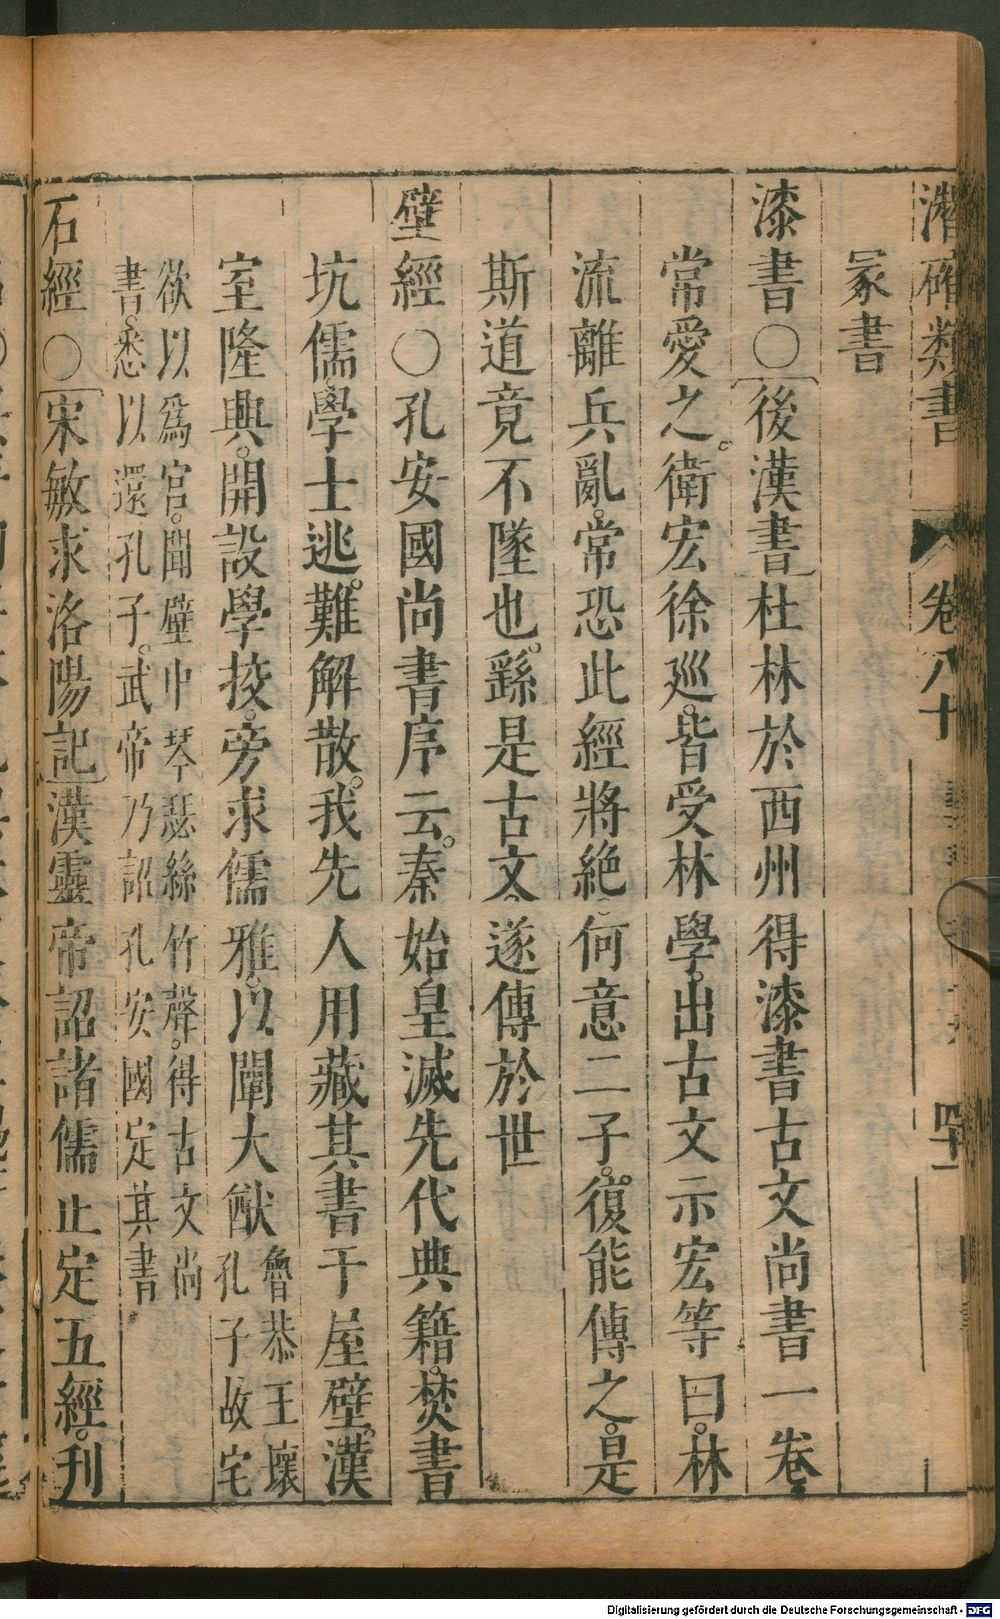 潛確類書 卷八十
冢書
漆書○後漢書杜林於西州得漆書古文尚書一卷
常愛之。衛宏徐巡。皆受林學。出古文示宏等曰。林
流離兵亂。常恐此經將絕。何意二子。復能傳之。是
斯道竟不墜也。繇是古文遂傳於世
壁經○孔安國尚書序云。秦始皇滅先代典籍。焚書
坑儒。學士逃難。解散。我先人用藏其書于屋壁。漢
室隆興。開設學挍。旁求儒雅。以闡大猷魯恭王壞孔子故宅
欲以爲宮。聞壁中琴瑟絲竹聲。得古文尚
書。悉以還孔子。武帝乃詔孔安國定其書
石經○宋敏求洛陽記漢靈帝詔諸儒止定五經。刊
Digitalisierung gefördert durch die Deutsche Forschungsgemeinschaft - DFG